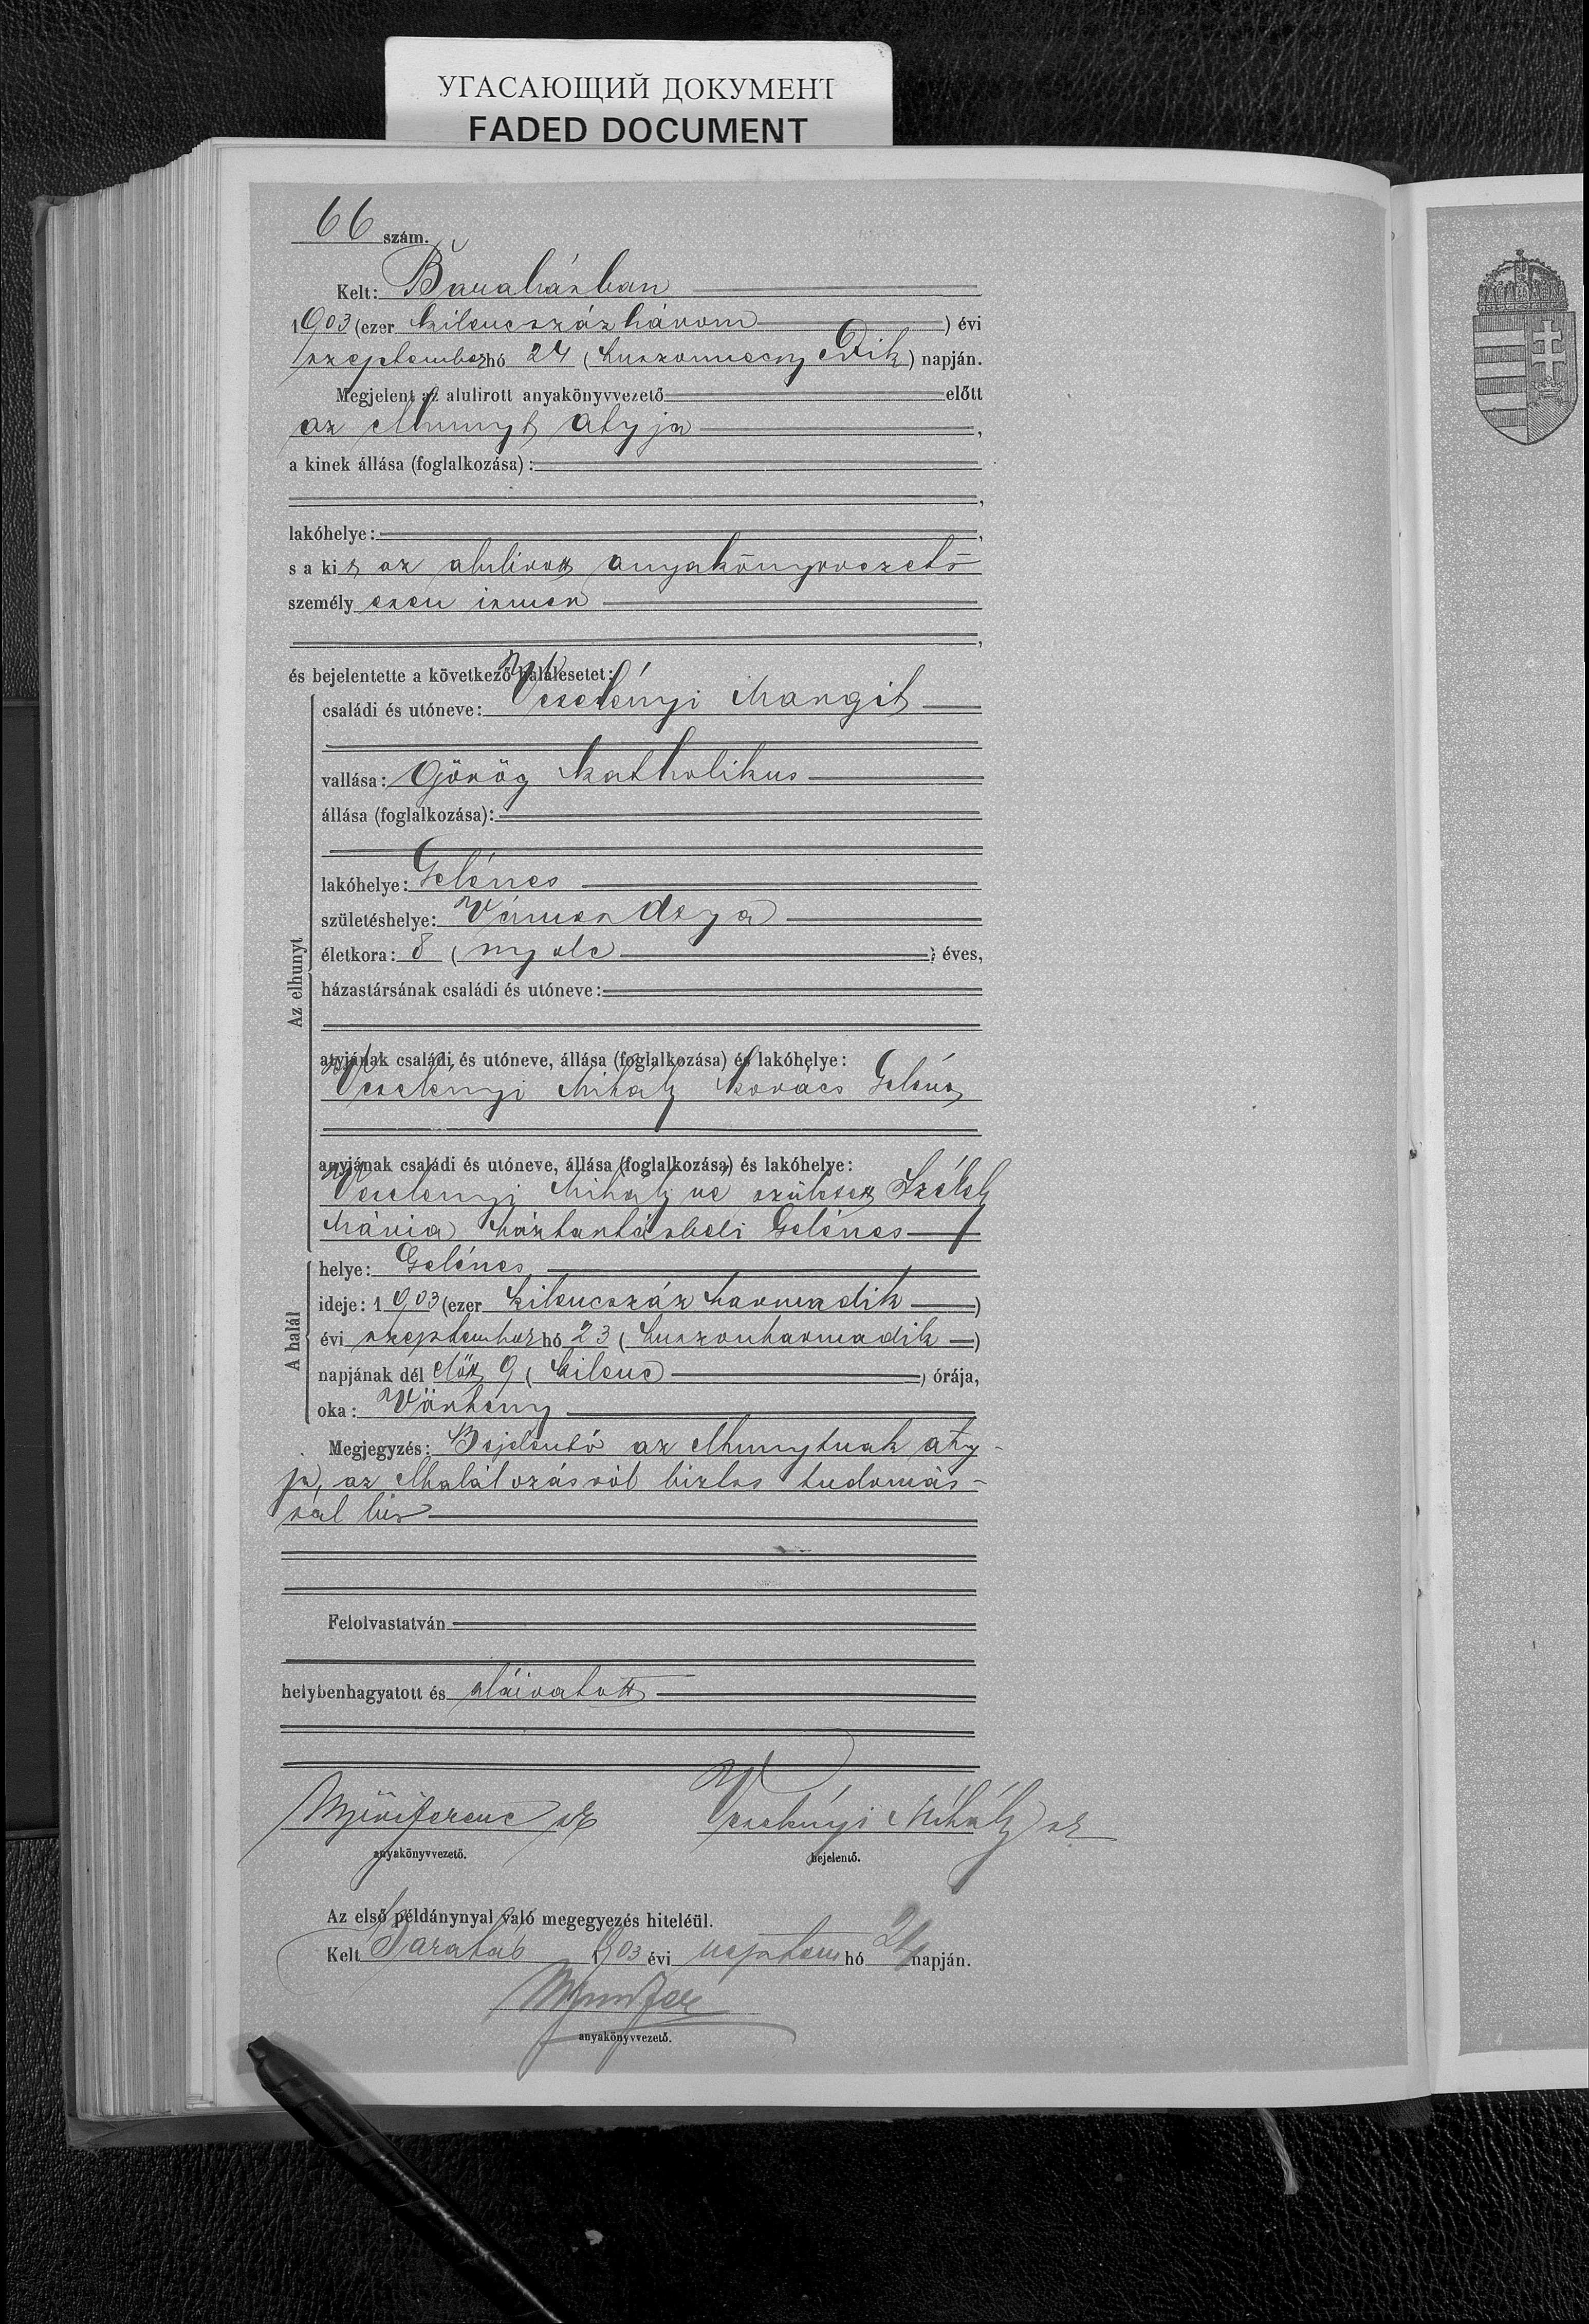 УГАСАЮЩИЙ ДОКУМЕНТ
FADED DOCUMENT
66 szám.
Kelt: Barabásban
1903 (ezer kilencszázhárom) évi
szeptember hó 24 (huszonnegyedik) napján.
Megjelent az alulirott anyakönyvvezető előtt
az elhunyt atyja,
a kinek állása (foglalkozása):
,
lakóhelye: ,
s a kit az alulirott anyakönyvvezető
személyesen ismer
,
és bejelentette a következő halálesetet:
Az elhunyt
családi és utóneve: Veselényi Margit
vallása: Görög katholikus
állása (foglalkozása):
lakóhelye: Gelénes
születéshelye: Vámos
életkora: 8 (nyolc) éves,
házastársának családi és utóneve:
atyjának családi és utóneve, állása (foglalkozása) és lakóhelye:
Veselényi Mihály kovács Gelénes
anyjának családi és utóneve, állása (foglalkozása) és lakóhelye:
Veselenyi Mihályné született Székely
Mária háztartásbeli Gelénes
A halál
helye: Gelénes
ideje: 1903 (ezer kilencszáz harmadik)
évi szeptember hó 23 (huszonharmadik)
napjának dél előtt 9 (kilenc) órája,
oka: Vörheny
Megjegyzés: Bejelentő az elhunytnak aty-
ja, az elhalálozásról biztos tudomás-
sal bír
Felolvastatván
helybenhagyatott és aláiratott
ferenc sk
Veselényi Mihály sk
anyakönyvvezető.
bejelentő.
Az első példánynyal való megegyezés hiteléül.
Kelt Barabás 1903 évi szeptem hó 24 napján.
anyakönyvvezető.